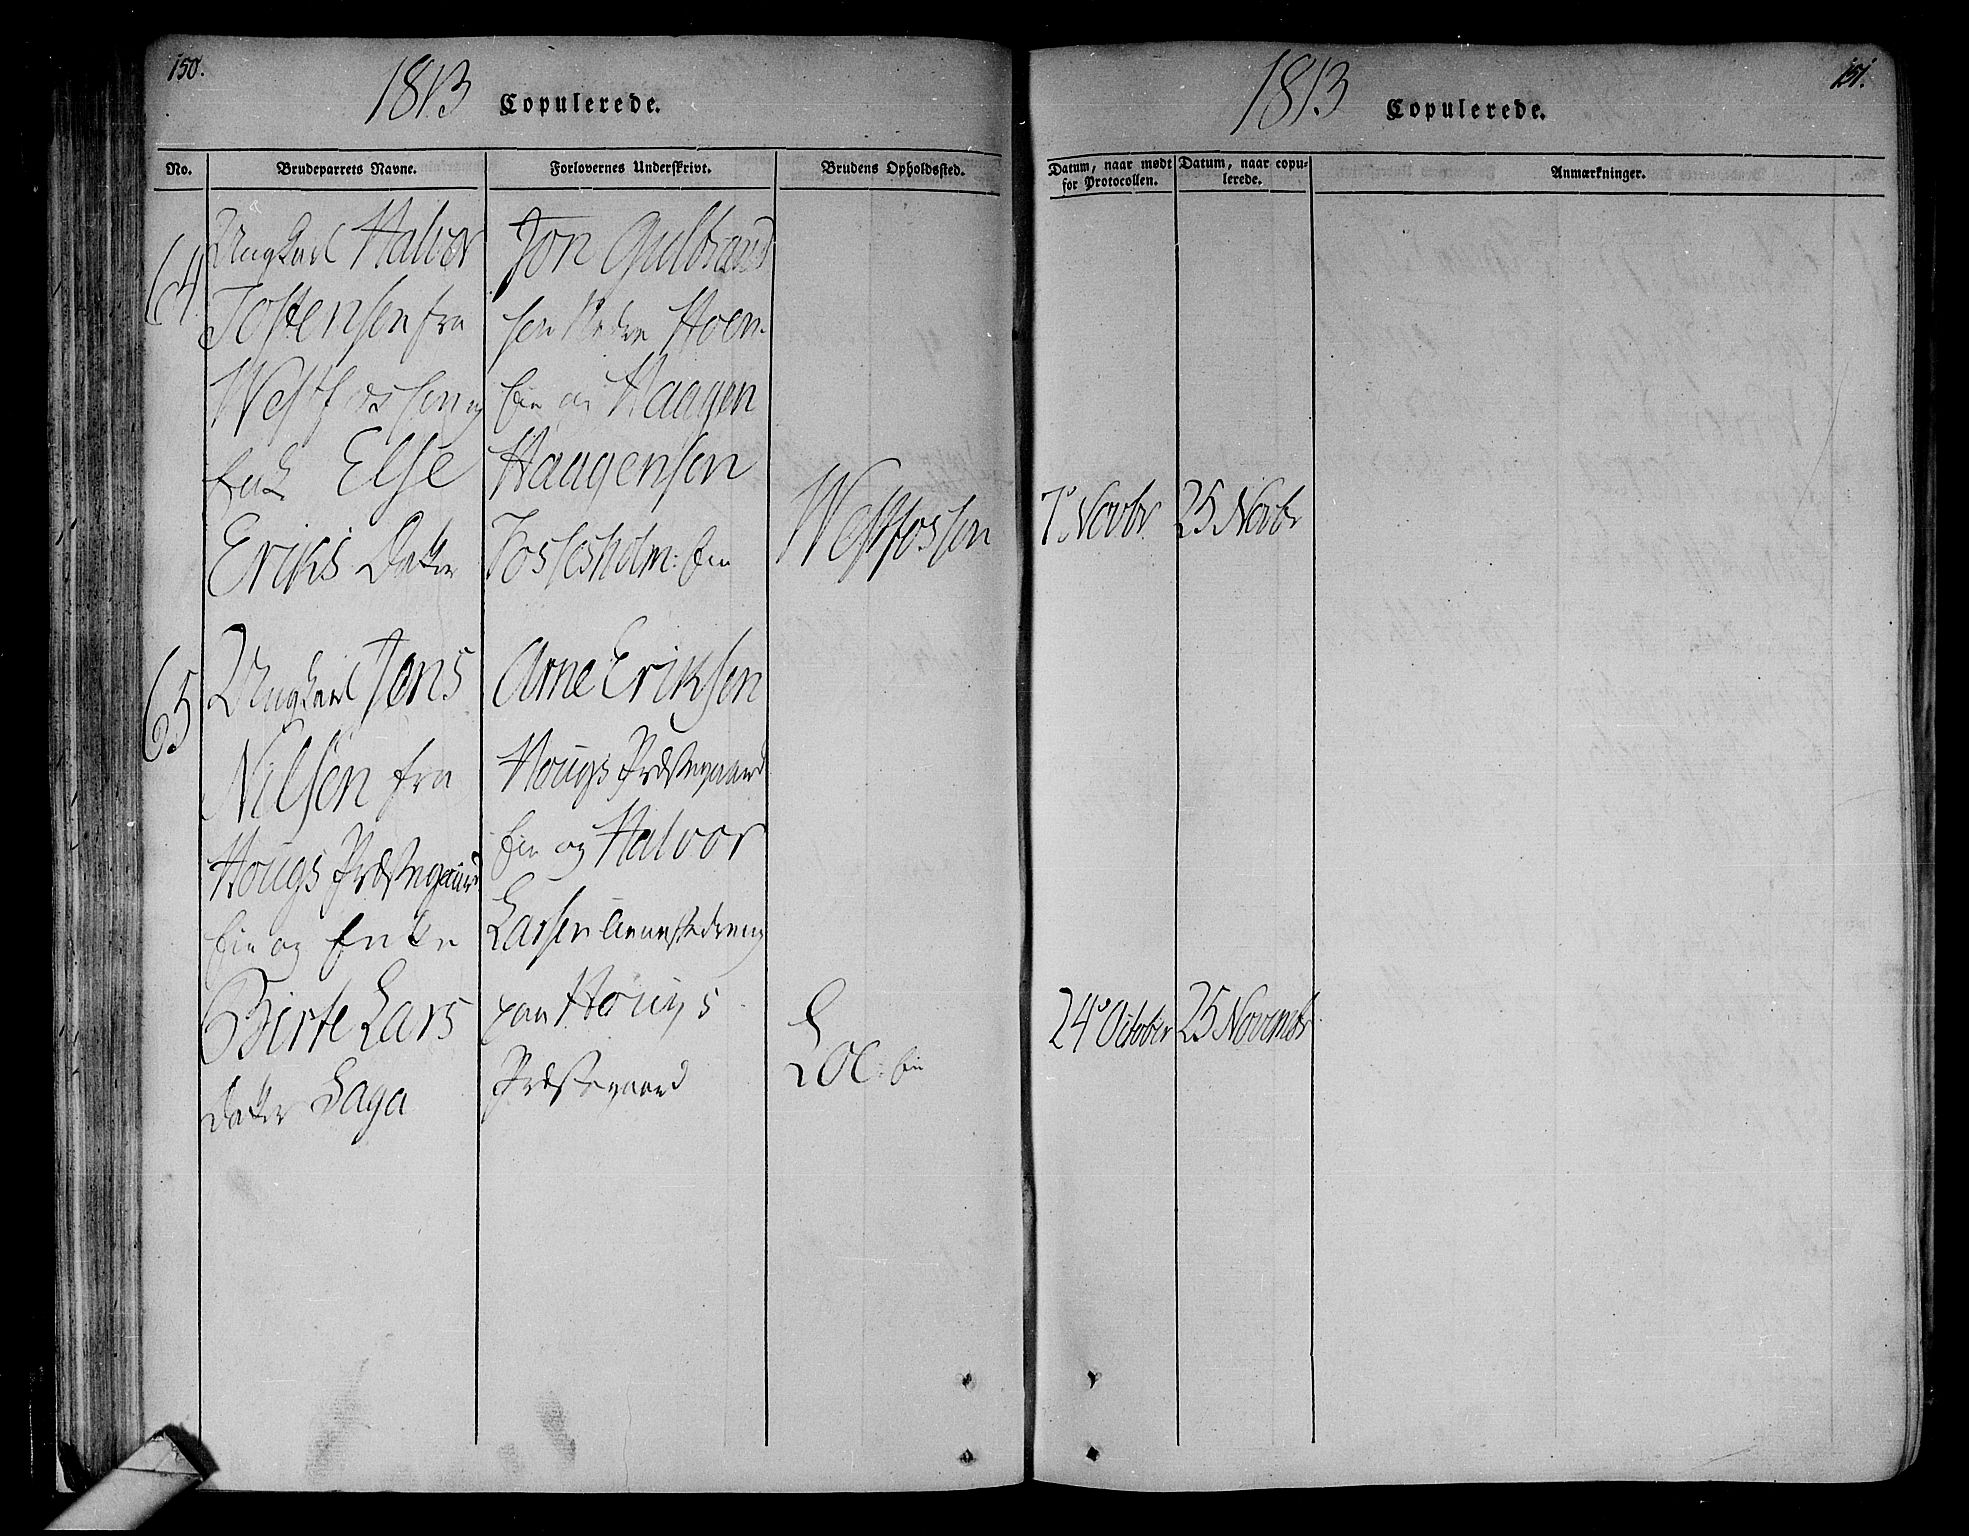 150.
1813 Copulerede.
No.
Brudeparrets Navne.
Forlovernes Underskrivt.
Brudens Opholdssted.
64
Ungkarl Halvor
Tostensen fra
Westfossen og
Else
Eriks Datter
Jon Gulbrand
sen Nedre Hoen
Eie og Haagen
Haagensen
Fossesholm: Eie
Westfossen
65
Ungkarl Jens
Nilsen fra
Hougs Præstegaard
Eie og Enke
Birte Lars
Datter Haga
Arne Eriksen
Hougs Præstegaard
Eie og Halvor
Larsen
paa Hougs
Præstegaard
Loe: Eie
151.
1813 Copulerede.
Datum, naar mødt
for Protocollen.
Datum, naar copu-
lerede.
Anmærkninger.
7de Novbr
25 Novbr
24de October
25 Novembr